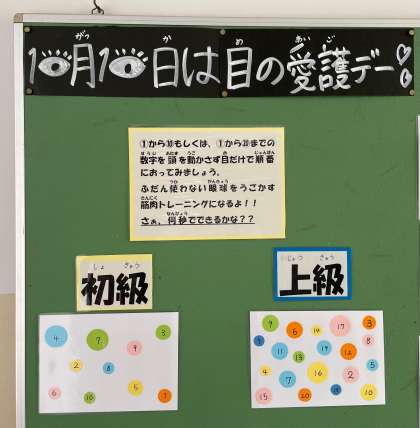 10月10日は目の愛護デー
①から⑩もしくは、①から⑳までの
数字を頭を動かさず目だけで順番
におってみましょう。
ふだん使わない眼球をうごかす
筋肉トレーニングになるよ！！
さぁ、何秒でできるかな？？
初級
上級
4
7
3
9
2
8
6
10
5
1
9
6
14
17
3
1
11
13
19
12
8
5
4
7
16
2
15
20
18
10